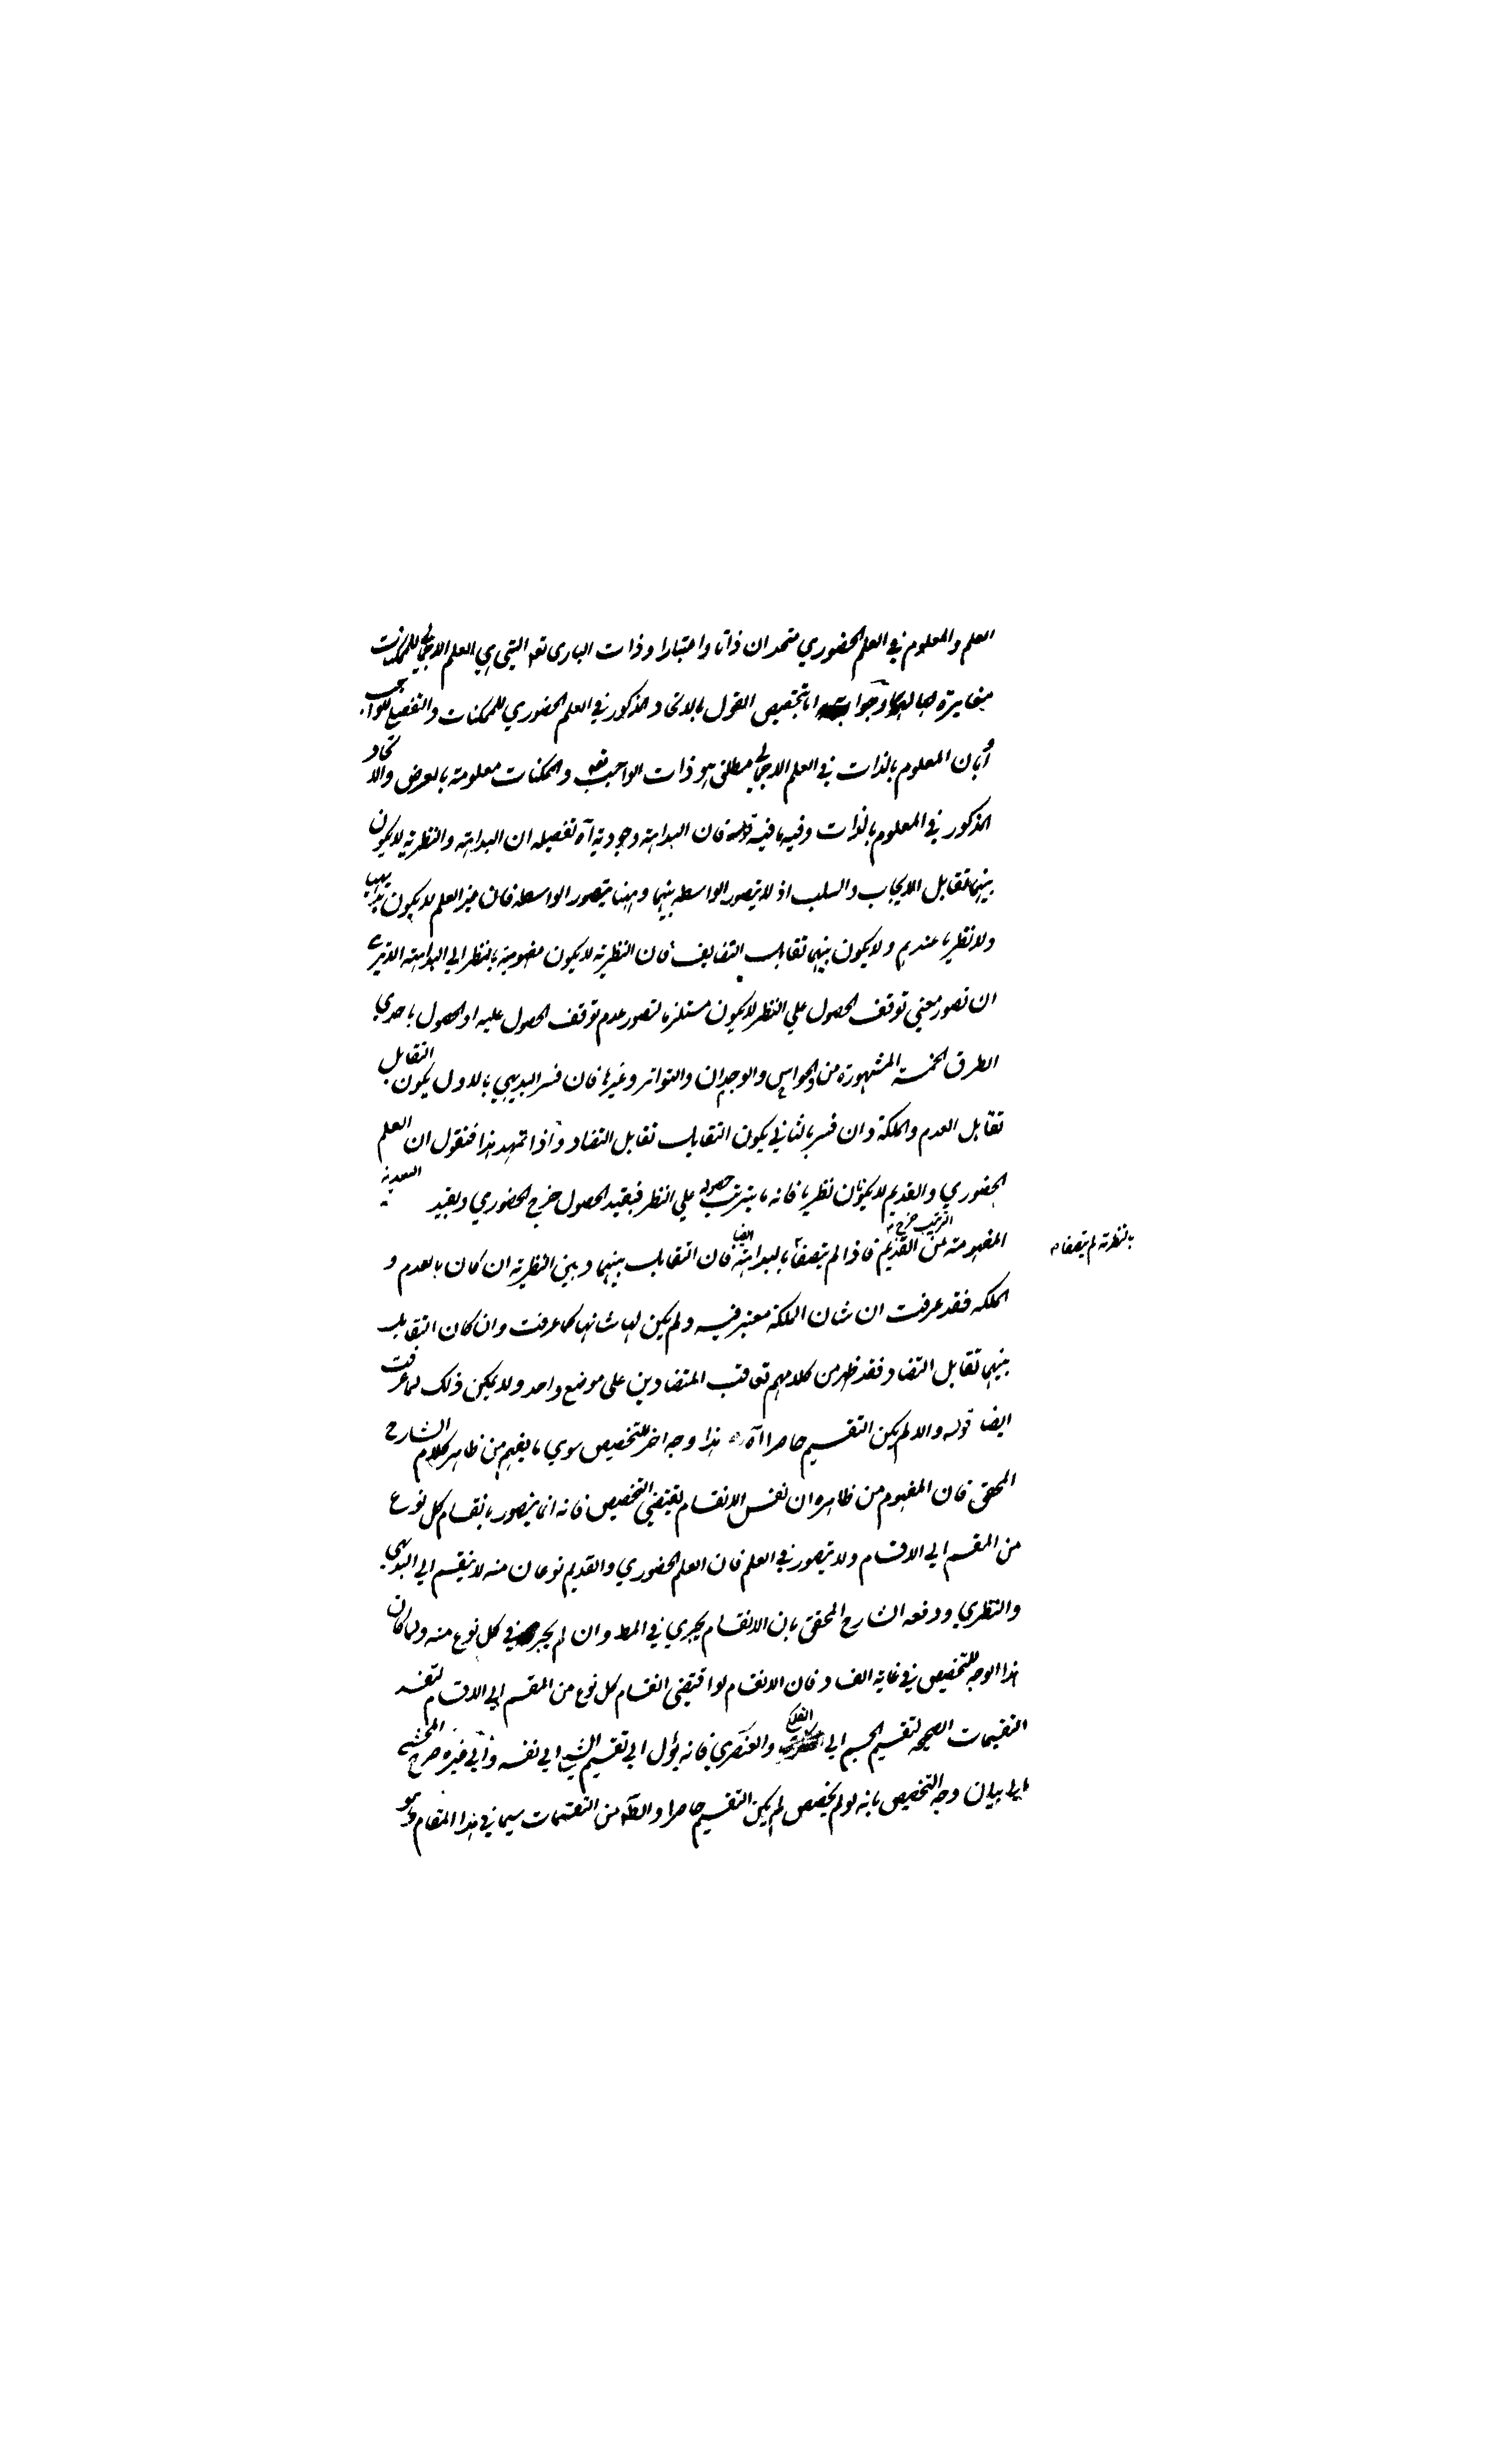 العلم والمعلوم في العلم الحضوري متحدان ذاتا واعتبارا وذات الباري تعه التي هي العلم الاجمالي للممكنات
مغايرة لها اما بتخصيص القول بالاتحاد المذكور في العلم الحضوري للممكنات والتفصيلي للواجب
او بان المعلوم بالذات في العلم الاجمالي مطلق هو ذات الواجب تعه والممكنات معلومة بالعرض والاتحاد
المذكور في المعلوم بالذات وفيه ما فيه قوله فان البداهة وجودية آه تفصيله ان البداهة والنظرية لا يكون
بينهما تقابل الايجاب والسلب اذ لا يتصور الواسطة بينهما وههنا يتصور الواسطة فان غير العلم لا يكون بديهيا
ولا نظريا عندهم ولا يكون بينهما تقابل التضايف فان النظرية لا يكون مفهومية بالنظر الي البداهة
ان تصور معني توقف الحصول علي النظر لا يكون مستلزما لتصور عدم توقف الحصول عليه او الحصول باحدي
الطرق الخمسة المشهورة من الحواس والوجدان والتواتر وغيرها فان فسر البديهي بالاول يكون التقابل
تقابل العدم والملكة وان فسر بالثاني يكون التقابل تقابل التضاد واذا تمهد هذا فنقول ان العلم
الحضوري والقديم لا يكونان نظريا فانه ما يترتب حصوله علي النظر فبقيد الحصول خرج الحضوري وبقيد البعدية
المفهومة من الترتيب خرج القديم فاذا لم يتصفا بالنظرية لم يتصفا بالبداهة ايضا فان التقابل بينهما وبين النظرية ان كان بالعدم و
الملكة فقد عرفت ان شان الملكة معتبر فيه ولم يكن لها شانها كما عرفت وان كان التقابل
بينهما تقابل التضاد فقد ظهر من كلامهم تعاقب المتضادين على موضع واحد ولا يمكن ذلك لما عرفت
ايضا قوله والا لم يكن التقسيم حاصرا آه هذا وجه اخر للتخصيص سوي ما يفهم من ظاهر كلام الشارح
المحقق فان المفهوم من ظاهره ان نفس الانقسام يقتضي التخصيص فانه انما يتصور بانقسام كل نوع
من المقسم الي الاقسام ولا يتصور في العلم فان العلم الحضوري والقديم نوعان منه لا ينقسم الي البديهي
والنظري ودفعه الشارح المحقق بان الانقسام يجري في المط وان لم يجر في كل نوع منه ولما كان
هذا الوجه للتخصيص في غاية الفساد فان الانقسام لو اقتضي انقسام كل نوع من المقسم الي الاقسام لتفسد
التقسيمات الصحيحة لتقسيم الجسم الي الفلكي والعنصري فانه يؤل الي تقسيم الشيء الي نفسه والي غيره صرح المحشي
الي بيان وجه التخصيص بانه لو لم يخصص لم يكن التقسيم حاصرا من التقسيمات سيما في هذا المقام وهو